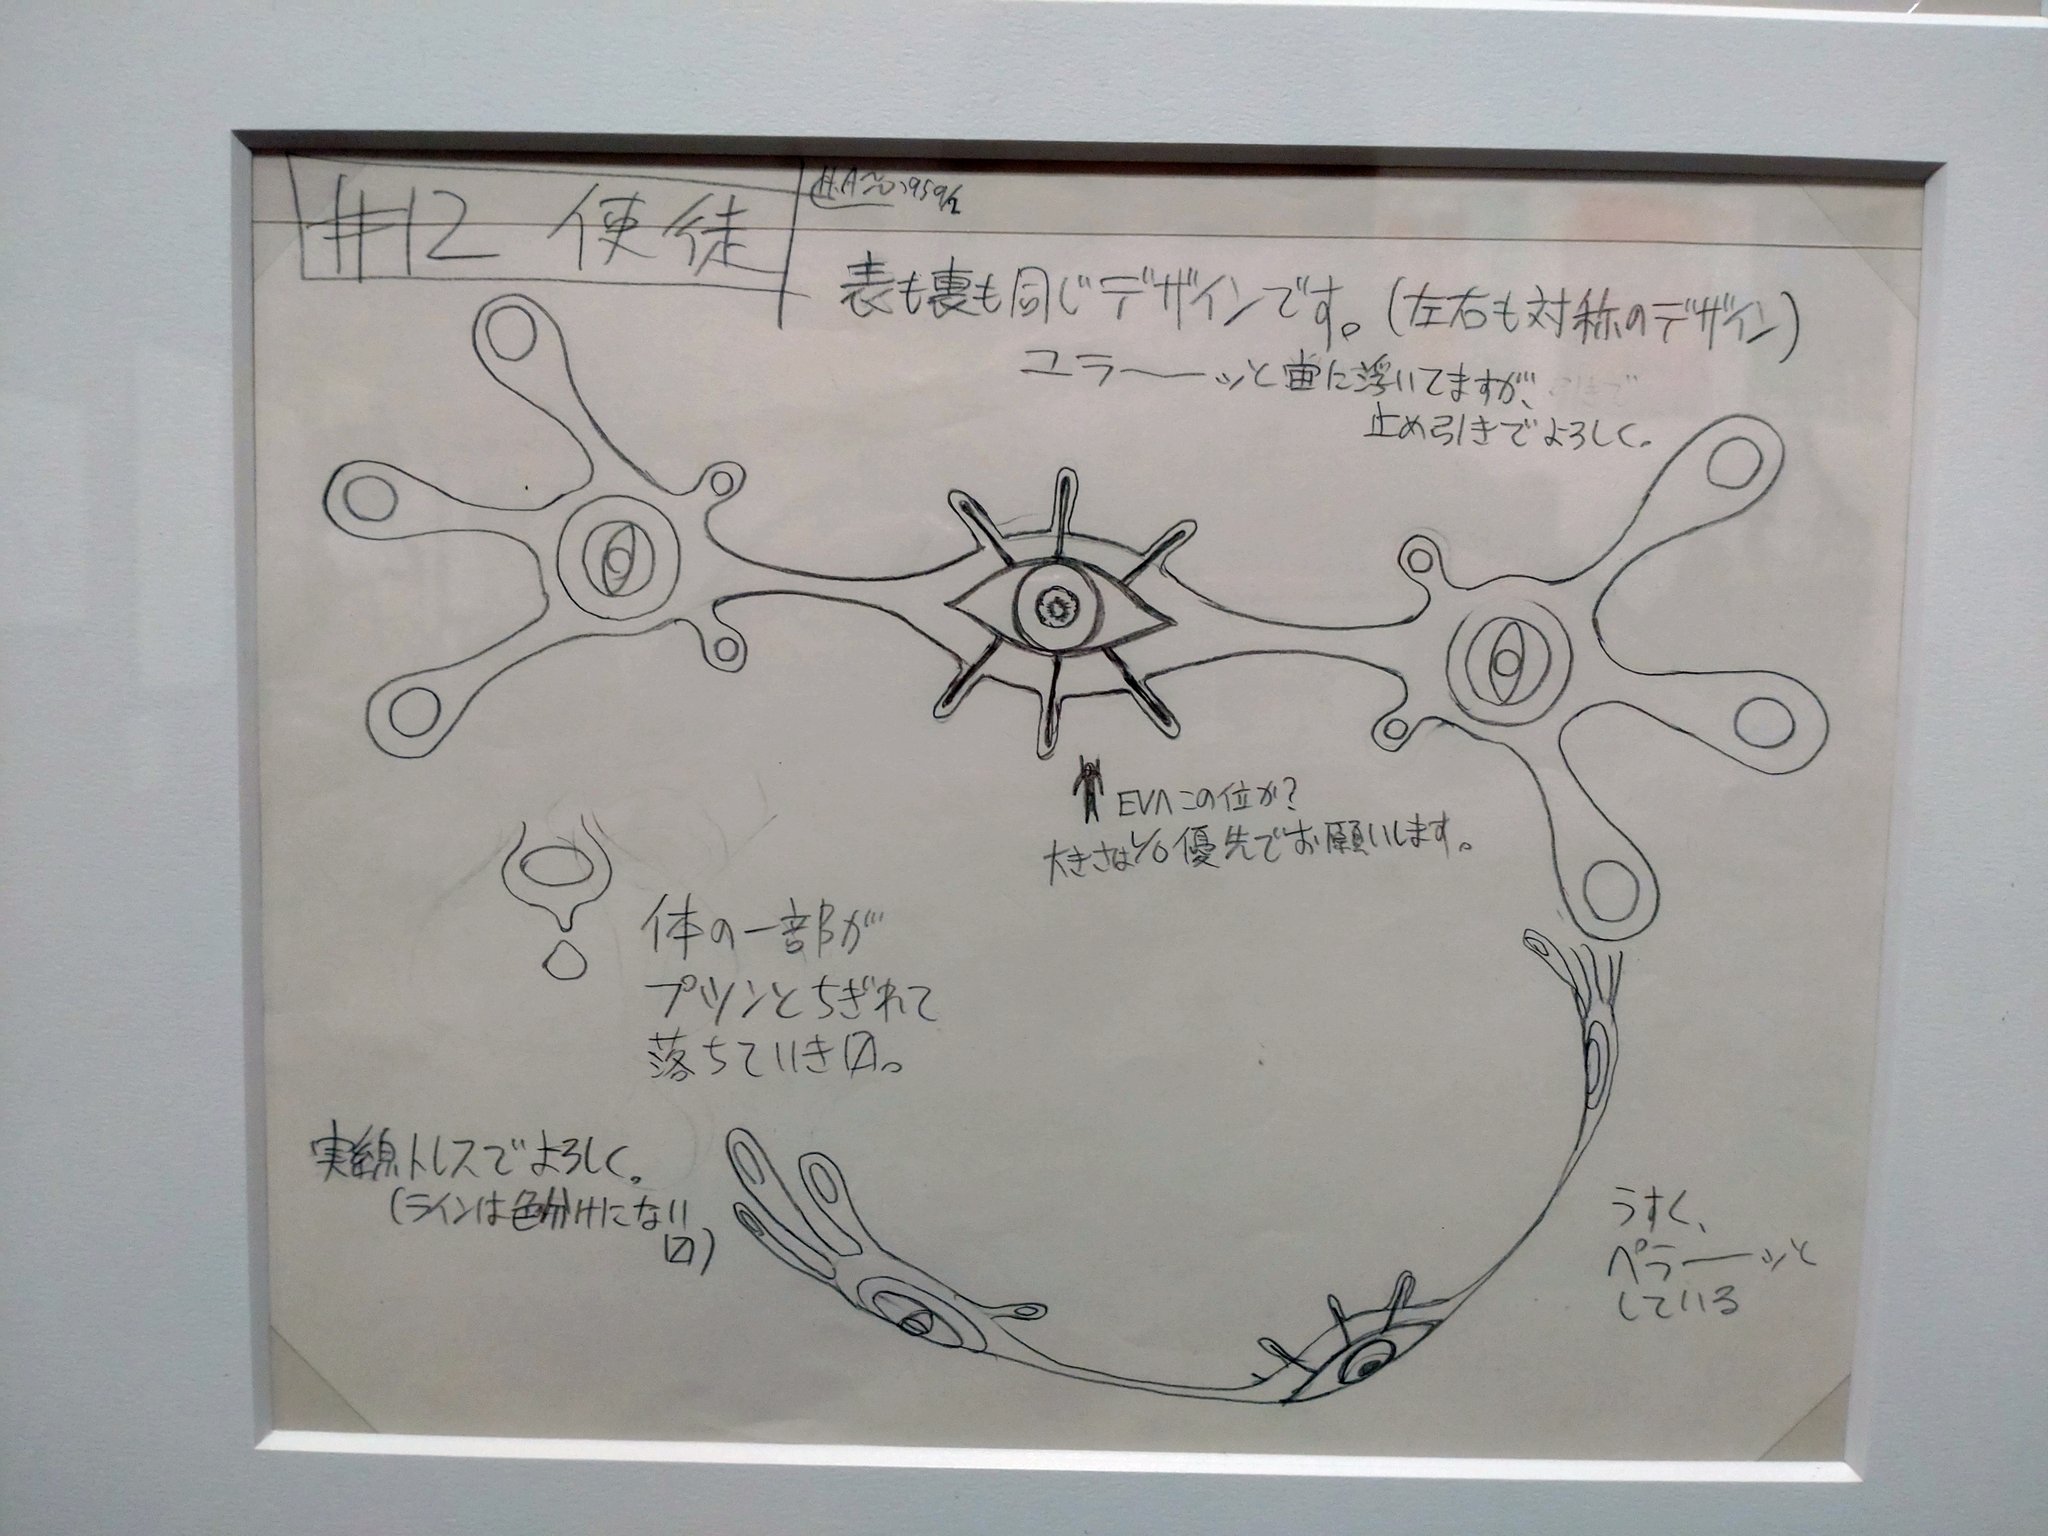 #12 使徒
表も裏も同じデザインです。(左右も対称のデザイン)
ユラ〜〜ッと宙に浮いてますが、
止め引きでよろしく。
EVAこの位か?
大きさはL/O優先でお願いします。
体の一部が
プツンとちぎれて
落ちていき〼。
実線トレスでよろしく。
(ラインは色分けにない
〼)
うすく、
ペラーーッと
している